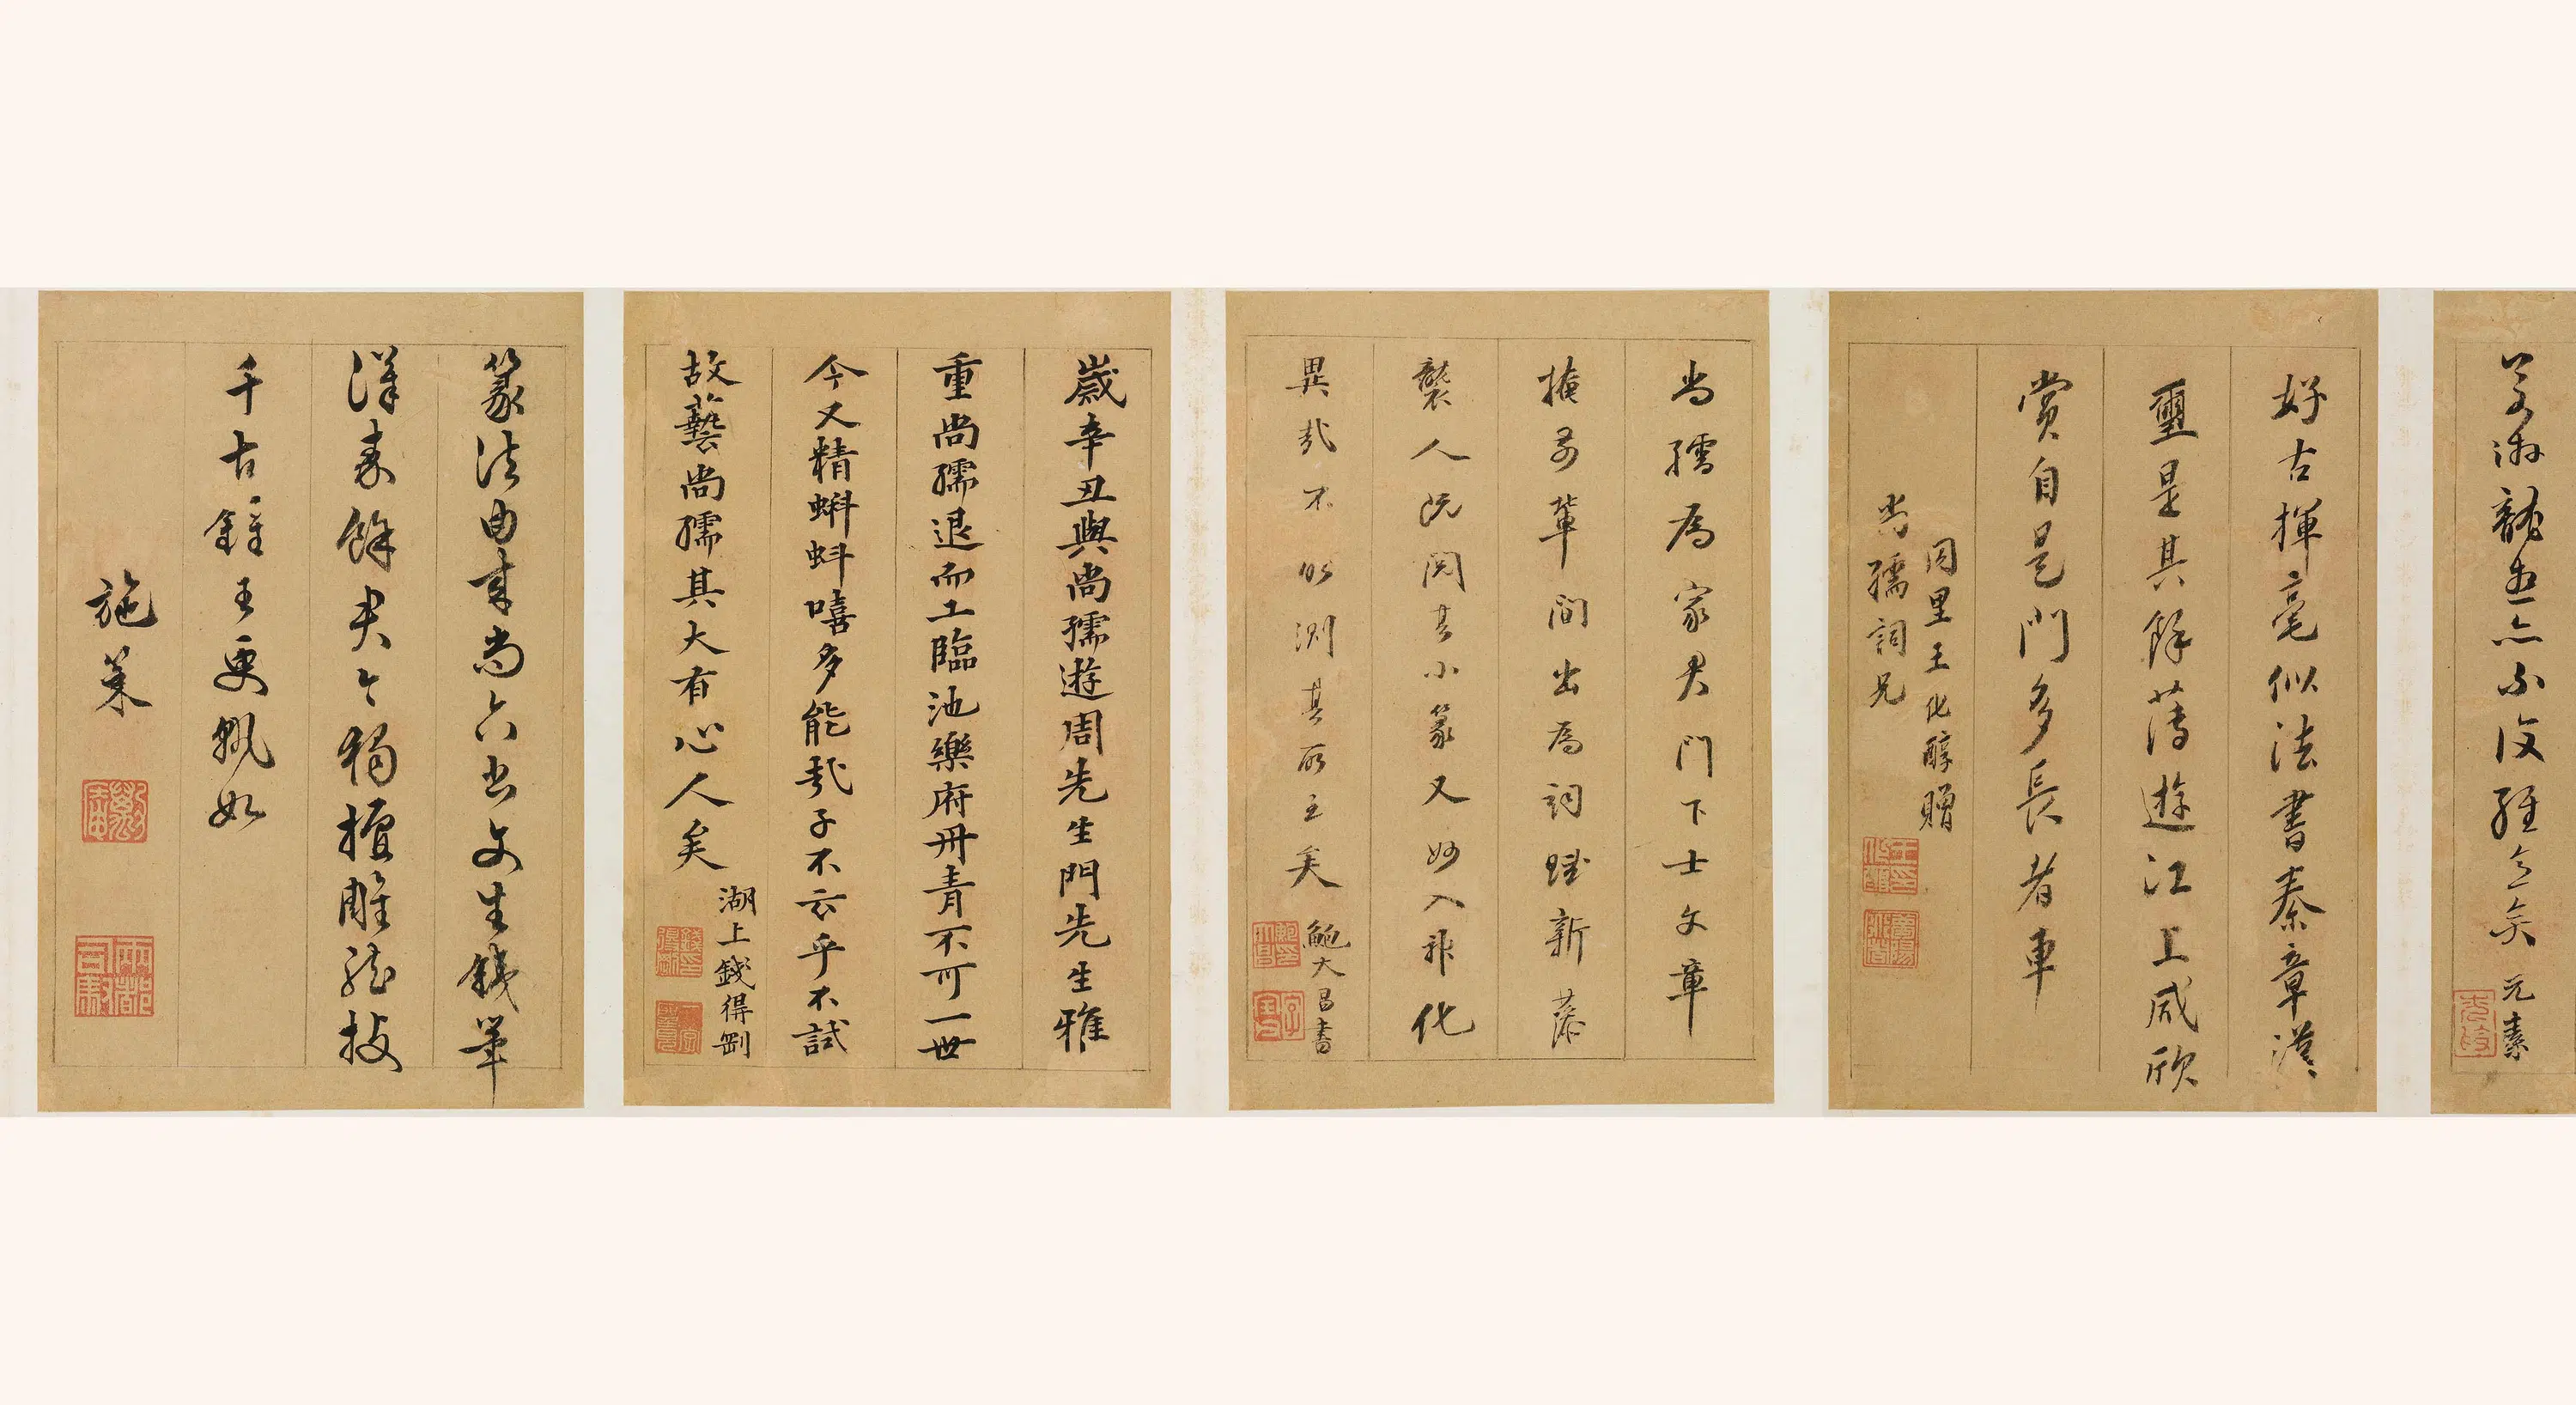 好古揮毫似法書秦章漢
璽是其餘薄遊江上咸欣
賞自是門多長者車
同里王化醇贈
尚孺詞兄
尚孺為家君門下士文章
掩前輩間出為詞賦新藻
襲人既閱其小篆又妙入神化
異哉不能測其所至矣
鮑大昌書
歲辛丑與尚孺遊周先生門先生雅
重尚孺退而工臨池樂府丹青不可一世
今又精蝌蚪嘻多能哉子不云乎不試
故藝尚孺其大有心人矣
湖上錢得劉
篆法由來尚六書文生鐵筆
漢秦餘尹令獨擅雕龍技
千古鍾王更孰如
施策
元素